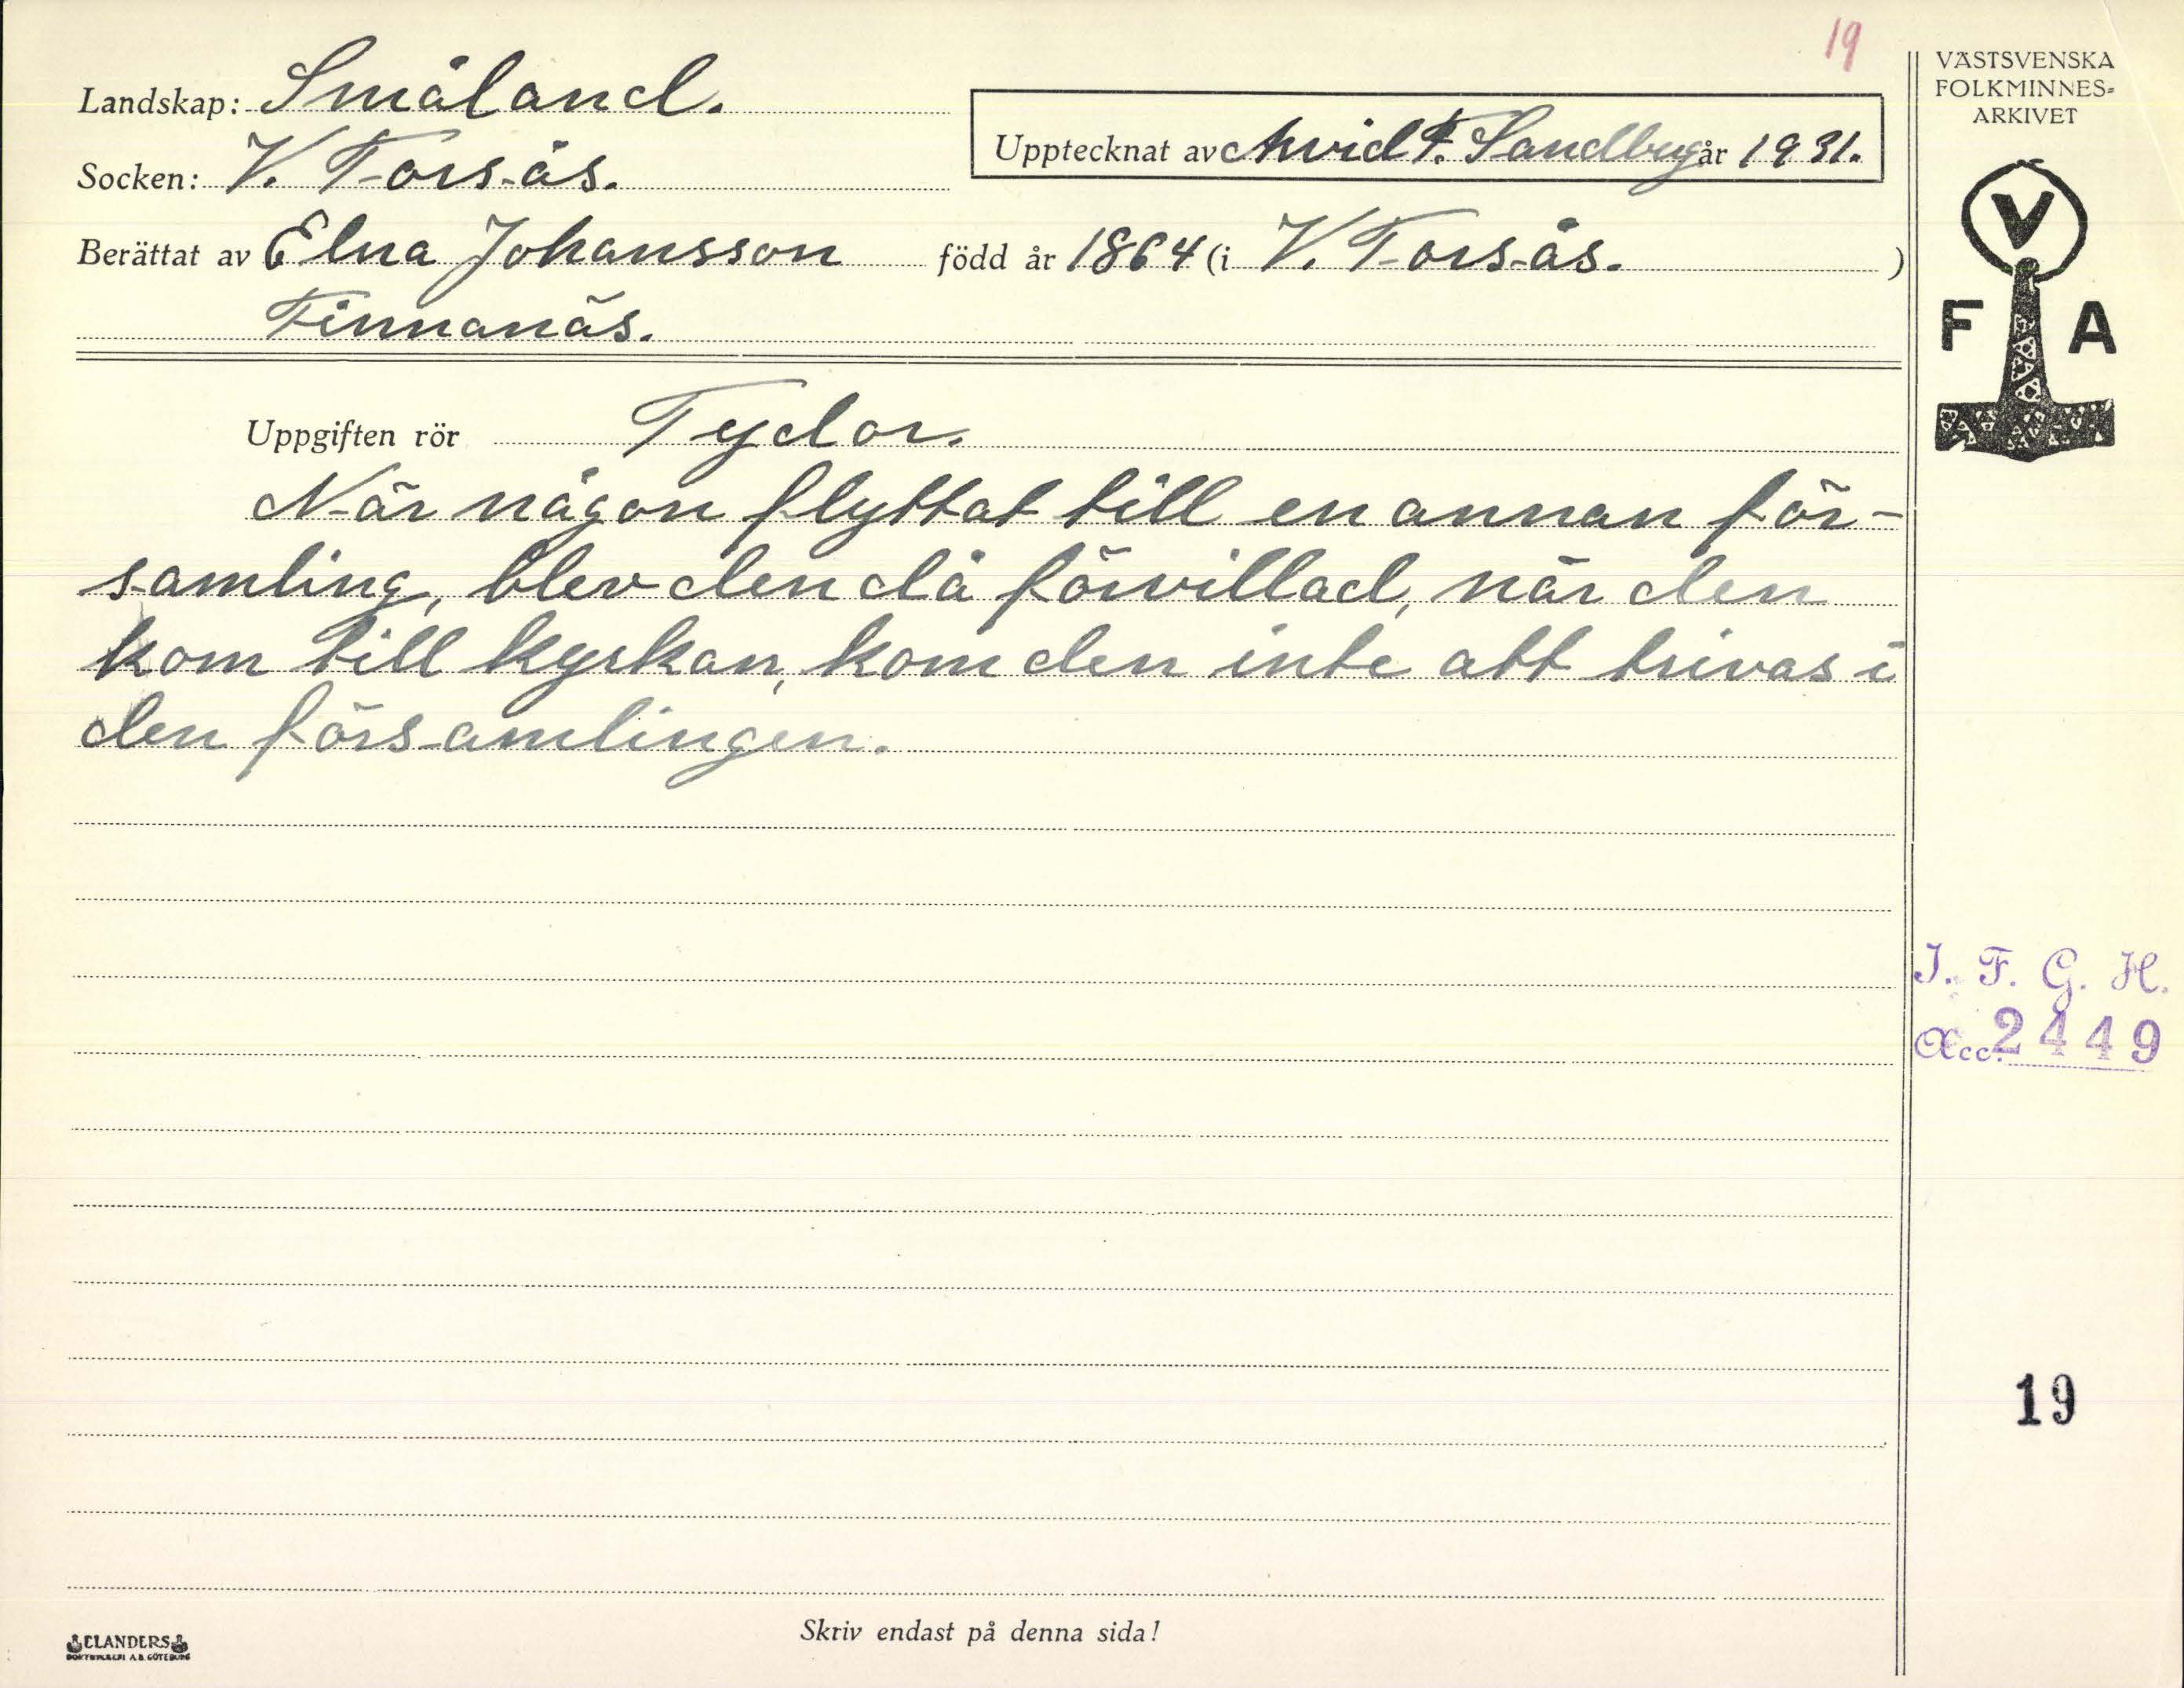 19
Landskap: Småland.
Socken: V. Torsås.
Upptecknat av Arvid F. Sandberg år 1931.
Berättat av Elna Johansson född år 1864 (i V. Torsås.)
Finnanäs.
Uppgiften rör Tydor.
När någon flyttat till en annan för-
samling, blev den då förvillad, när den
kom till kyrkan, kom den inte att trivas i
den församlingen.
VÄSTSVENSKA
FOLKMINNES-
ARKIVET
V
F A
I. F. G. H.
Acc. 2449
19
Skriv endast på denna sida!
ELANDERS
BOKTRYCKERI A.B. GÖTEBORG